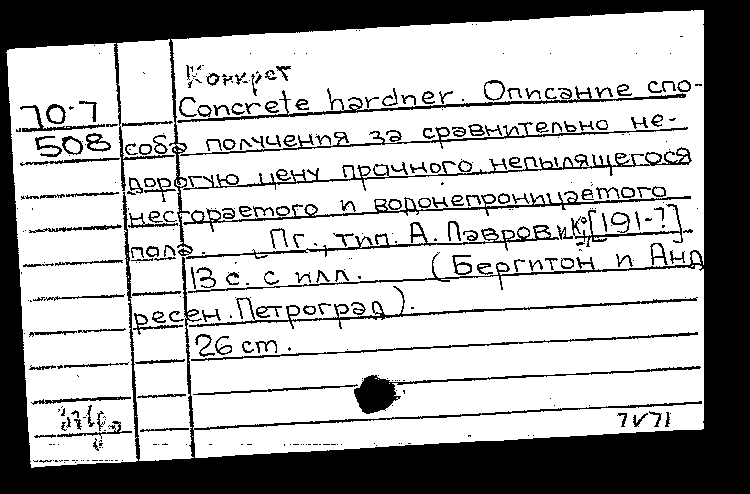 Конкрет
70-7 Concrete hardner. Описание спо-
508 соба получения за сравнительно не-
дорогую цену прочного, непылящегося
несгораемого и водонепроницаемого
пола. Пг., тип. А. Лавров и К° [191-?]
13 с. с илл. (Бергитон и Анд
ресен. Петроград).
26 cm.
71/71